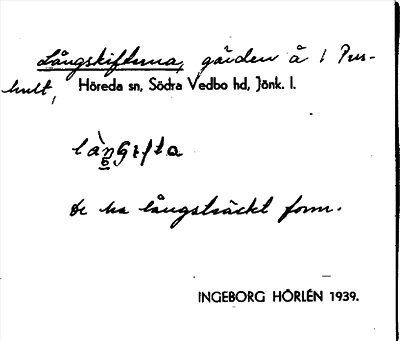 Långskiftena, gärden å 1 Pus-
hult,
Höreda sn, Södra Vedbo hd, Jönk. l.
De ha långsträckt form.
INGEBORG HÖRLÉN 1939.